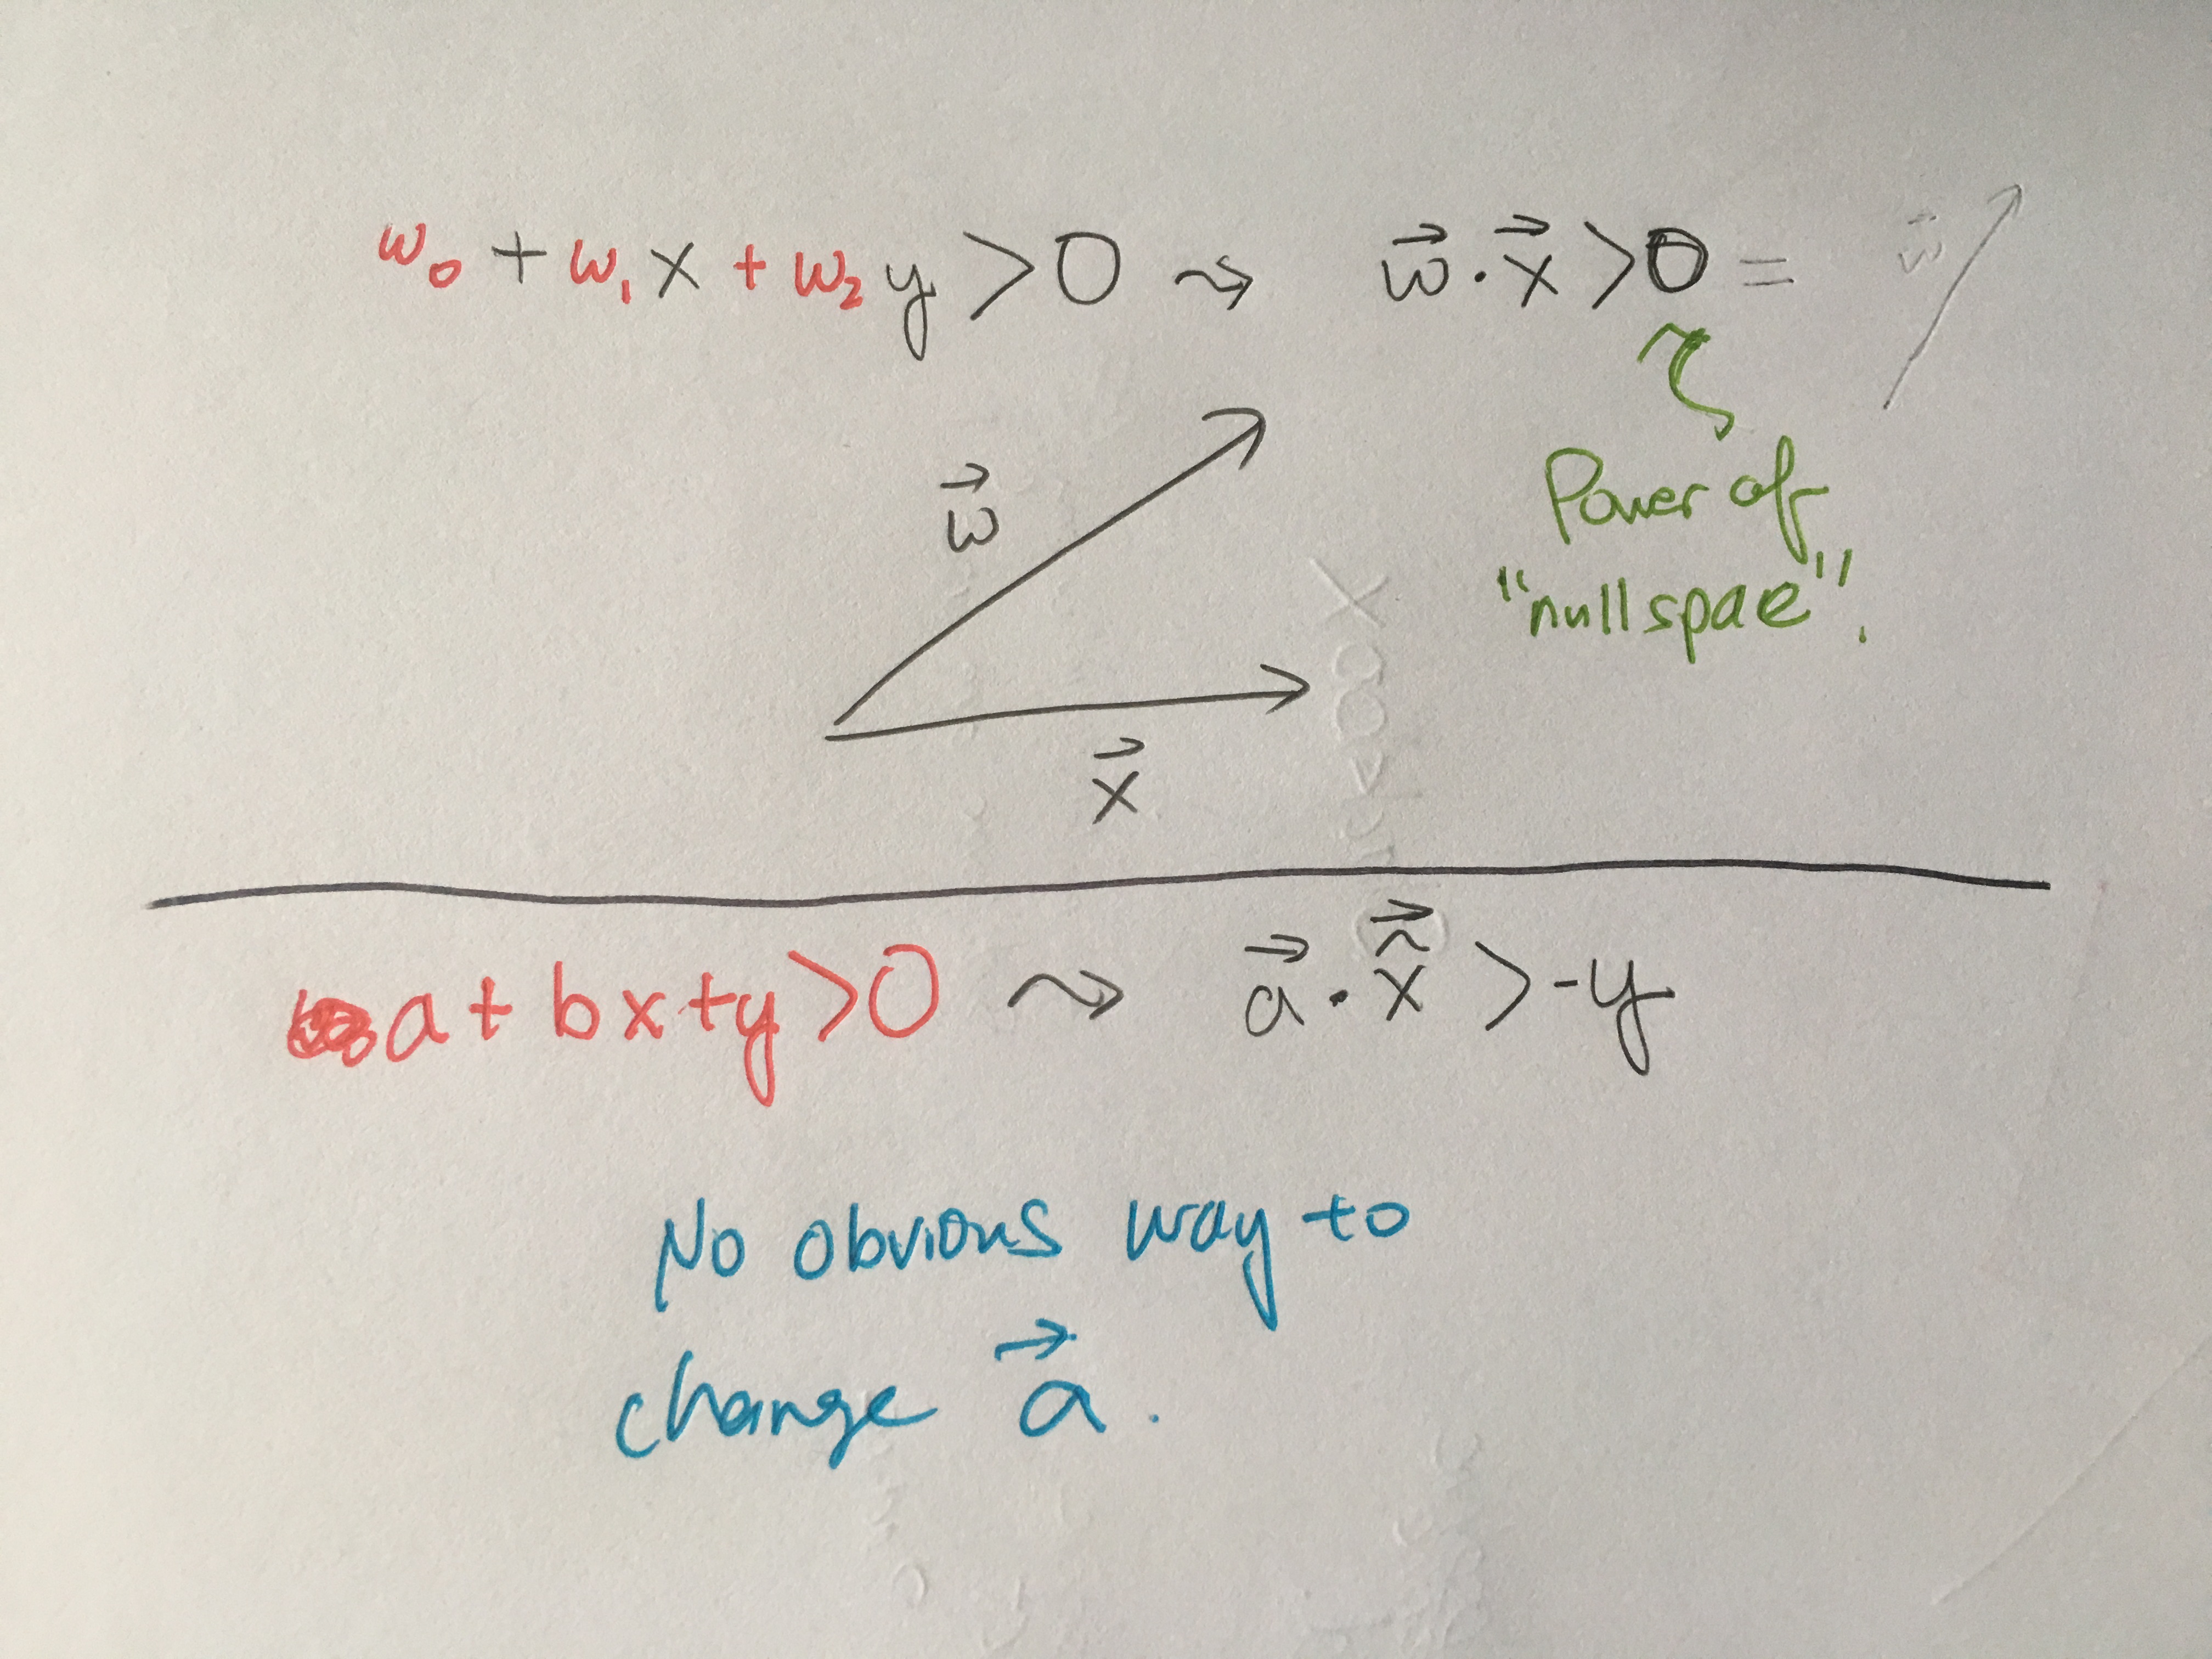 w₀ + w₁x + w₂y > 0 ⇝ w⃗ · x⃗ > 0 =
w⃗
Power of
"nullspace".
w⃗
x⃗
a + bx + y > 0 ⇝ a⃗ · x̃⃗ > -y
No obvious way to
change a⃗.